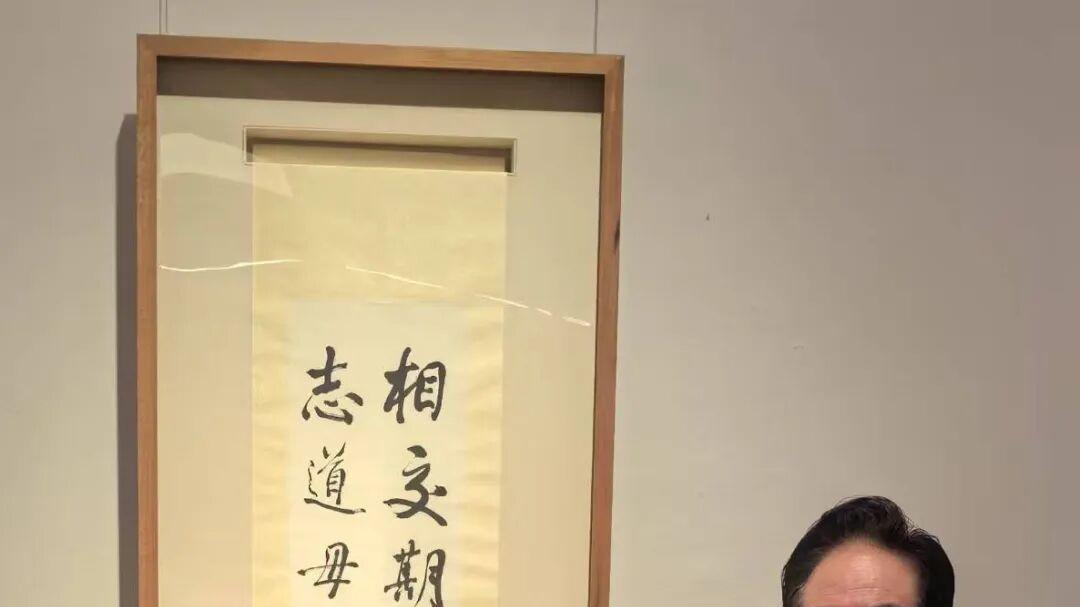 相交期
志道毋